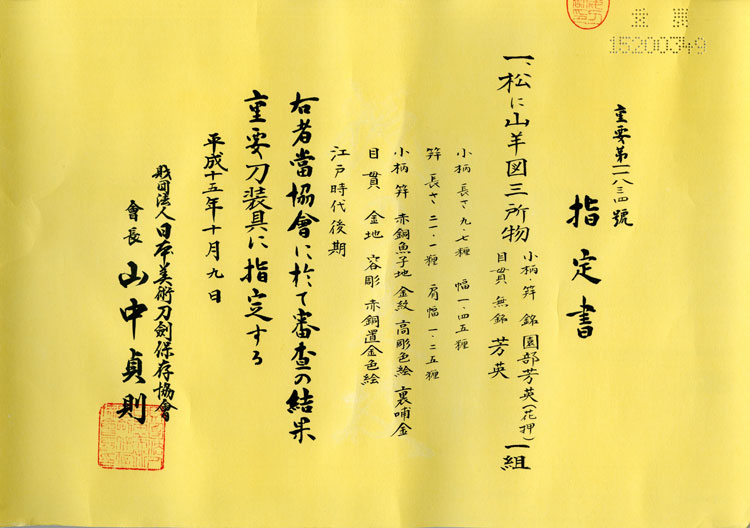 重要
15200349
重要第一一八三四號
指定書
一、松に山羊図三所物 小柄・笄 銘 園部芳英(花押) 一組
目貫 無銘 芳英
小柄 長さ 九・七糎 幅 一・四五糎
笄 長さ 二一・一糎 肩幅 一・二五糎
小柄 笄 赤銅魚子地 金紋 高彫色絵 裏哺金
目貫 金地 容彫 赤銅置金色絵
江戸時代後期
右者當協會に於て審査の結果
重要刀装具に指定する
平成十五年十月九日
財団法人日本美術刀劍保存協會
會長 山中貞則